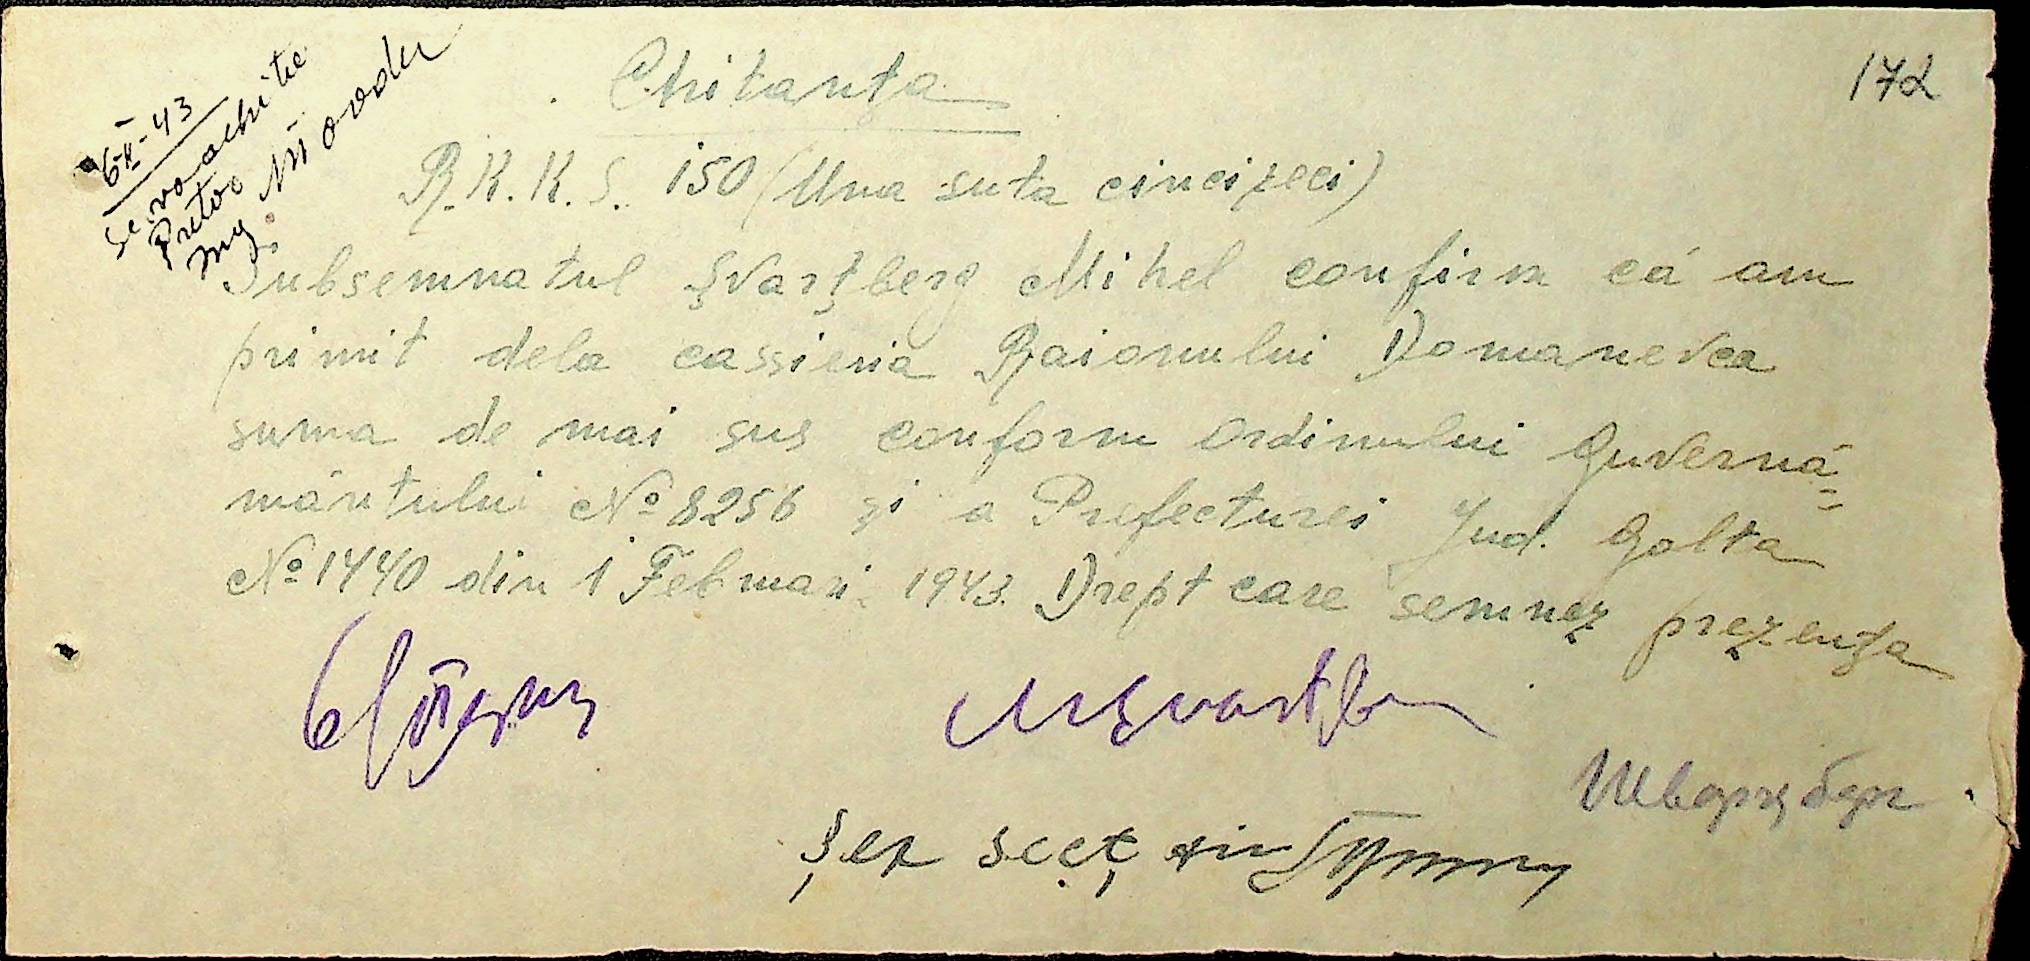 172
6-II-43
se va achita
Pretor
Chitanța
R.K.K.S. 150 (Una suta cincizeci)
Subsemnatul Șvarțberg Mihel confirm că am
primit dela cassieria Raionului Domanevca
suma de mai sus conform Ordinului Guvernă=
mântului № 8256 și a Prefecturei Jud. Golta
№ 1440 din 1 Februari. 1943. Drept care semnez prezența
Шварцберг
Șef secț